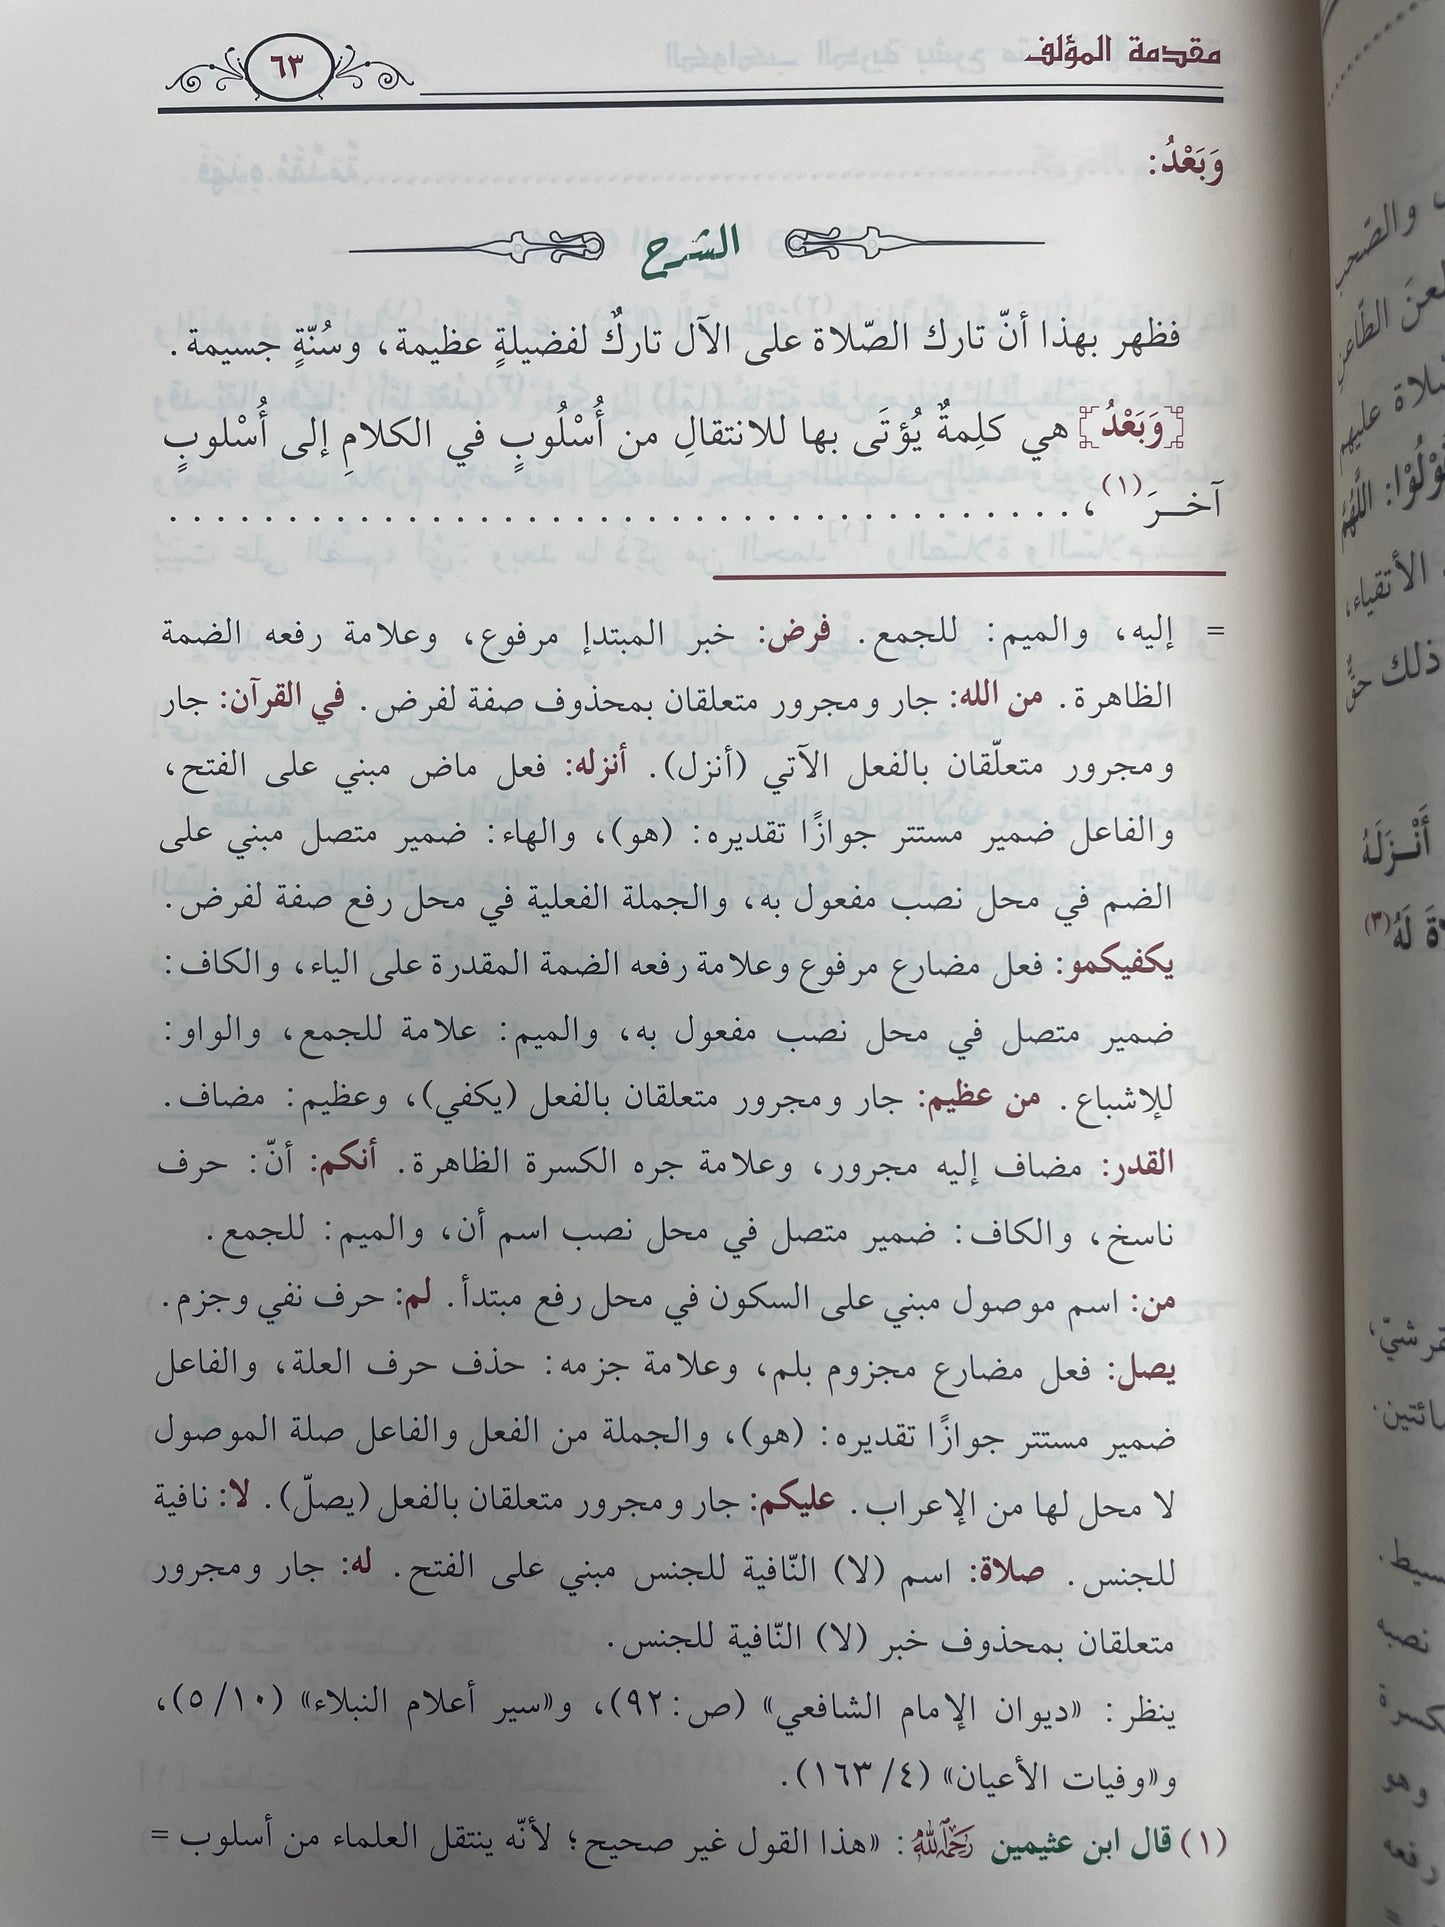 مقدمة المؤلف
٦٣
وَبَعْدُ:
الشرح
فظهر بهذا أنّ تارك الصّلاة على الآل تاركٌ لفضيلةٍ عظيمة، وسُنّةٍ جسيمة.
وَبَعْدُ هي كلِمةٌ يُؤتَى بها للانتقالِ من أُسْلُوبٍ في الكلامِ إلى أُسْلوبٍ
آخـرَ(١)، . . . . . . . . . . . . . . . . . . . . . . . . . . . . . . . . . . . . . .
= إليه، والميم: للجمع. فرض: خبر المبتدإ مرفوع، وعلامة رفعه الضمة
الظاهرة. من الله: جار ومجرور متعلقان بمحذوف صفة لفرض. في القرآن: جار
ومجرور متعلّقان بالفعل الآتي (أنزل). أنزله: فعل ماض مبني على الفتح،
والفاعل ضمير مستتر جوازًا تقديره: (هو)، والهاء: ضمير متصل مبني على
الضم في محل نصب مفعول به، والجملة الفعلية في محل رفع صفة لفرض.
يكفيكمو: فعل مضارع مرفوع وعلامة رفعه الضمة المقدرة على الياء، والكاف:
ضمير متصل في محل نصب مفعول به، والميم: علامة للجمع، والواو:
للإشباع. من عظيم: جار ومجرور متعلقان بالفعل (يكفي)، وعظيم: مضاف.
القدر: مضاف إليه مجرور، وعلامة جره الكسرة الظاهرة. أنكم: أنّ: حرف
ناسخ، والكاف: ضمير متصل في محل نصب اسم أن، والميم: للجمع.
من: اسم موصول مبني على السكون في محل رفع مبتدأ. لم: حرف نفي وجزم.
يصل: فعل مضارع مجزوم بلم، وعلامة جزمه: حذف حرف العلة، والفاعل
ضمير مستتر جوازًا تقديره: (هو)، والجملة من الفعل والفاعل صلة الموصول
لا محل لها من الإعراب. عليكم: جار ومجرور متعلقان بالفعل (يصلّ). لا: نافية
للجنس. صلاة: اسم (لا) النّافية للجنس مبني على الفتح. له: جار ومجرور
متعلقان بمحذوف خبر (لا) النّافية للجنس.
ينظر: «ديوان الإمام الشافعي» (ص:٩٢)، و«سير أعلام النبلاء» (١٠/ ٥)،
و«وفيات الأعيان» (٤/ ١٦٣).
(١) قال ابن عثيمين رَحِمَهُ اللهُ: «هذا القول غير صحيح؛ لأنّه ينتقل العلماء من أسلوب =
والصّحب
الطّاعن
عليهم
اللَّهُمَّ
الأتقياء،
ذلك حقٌّ
أَنْـزَلَهُ
لَهُ(٣)
نصبه
وهو
رفعه